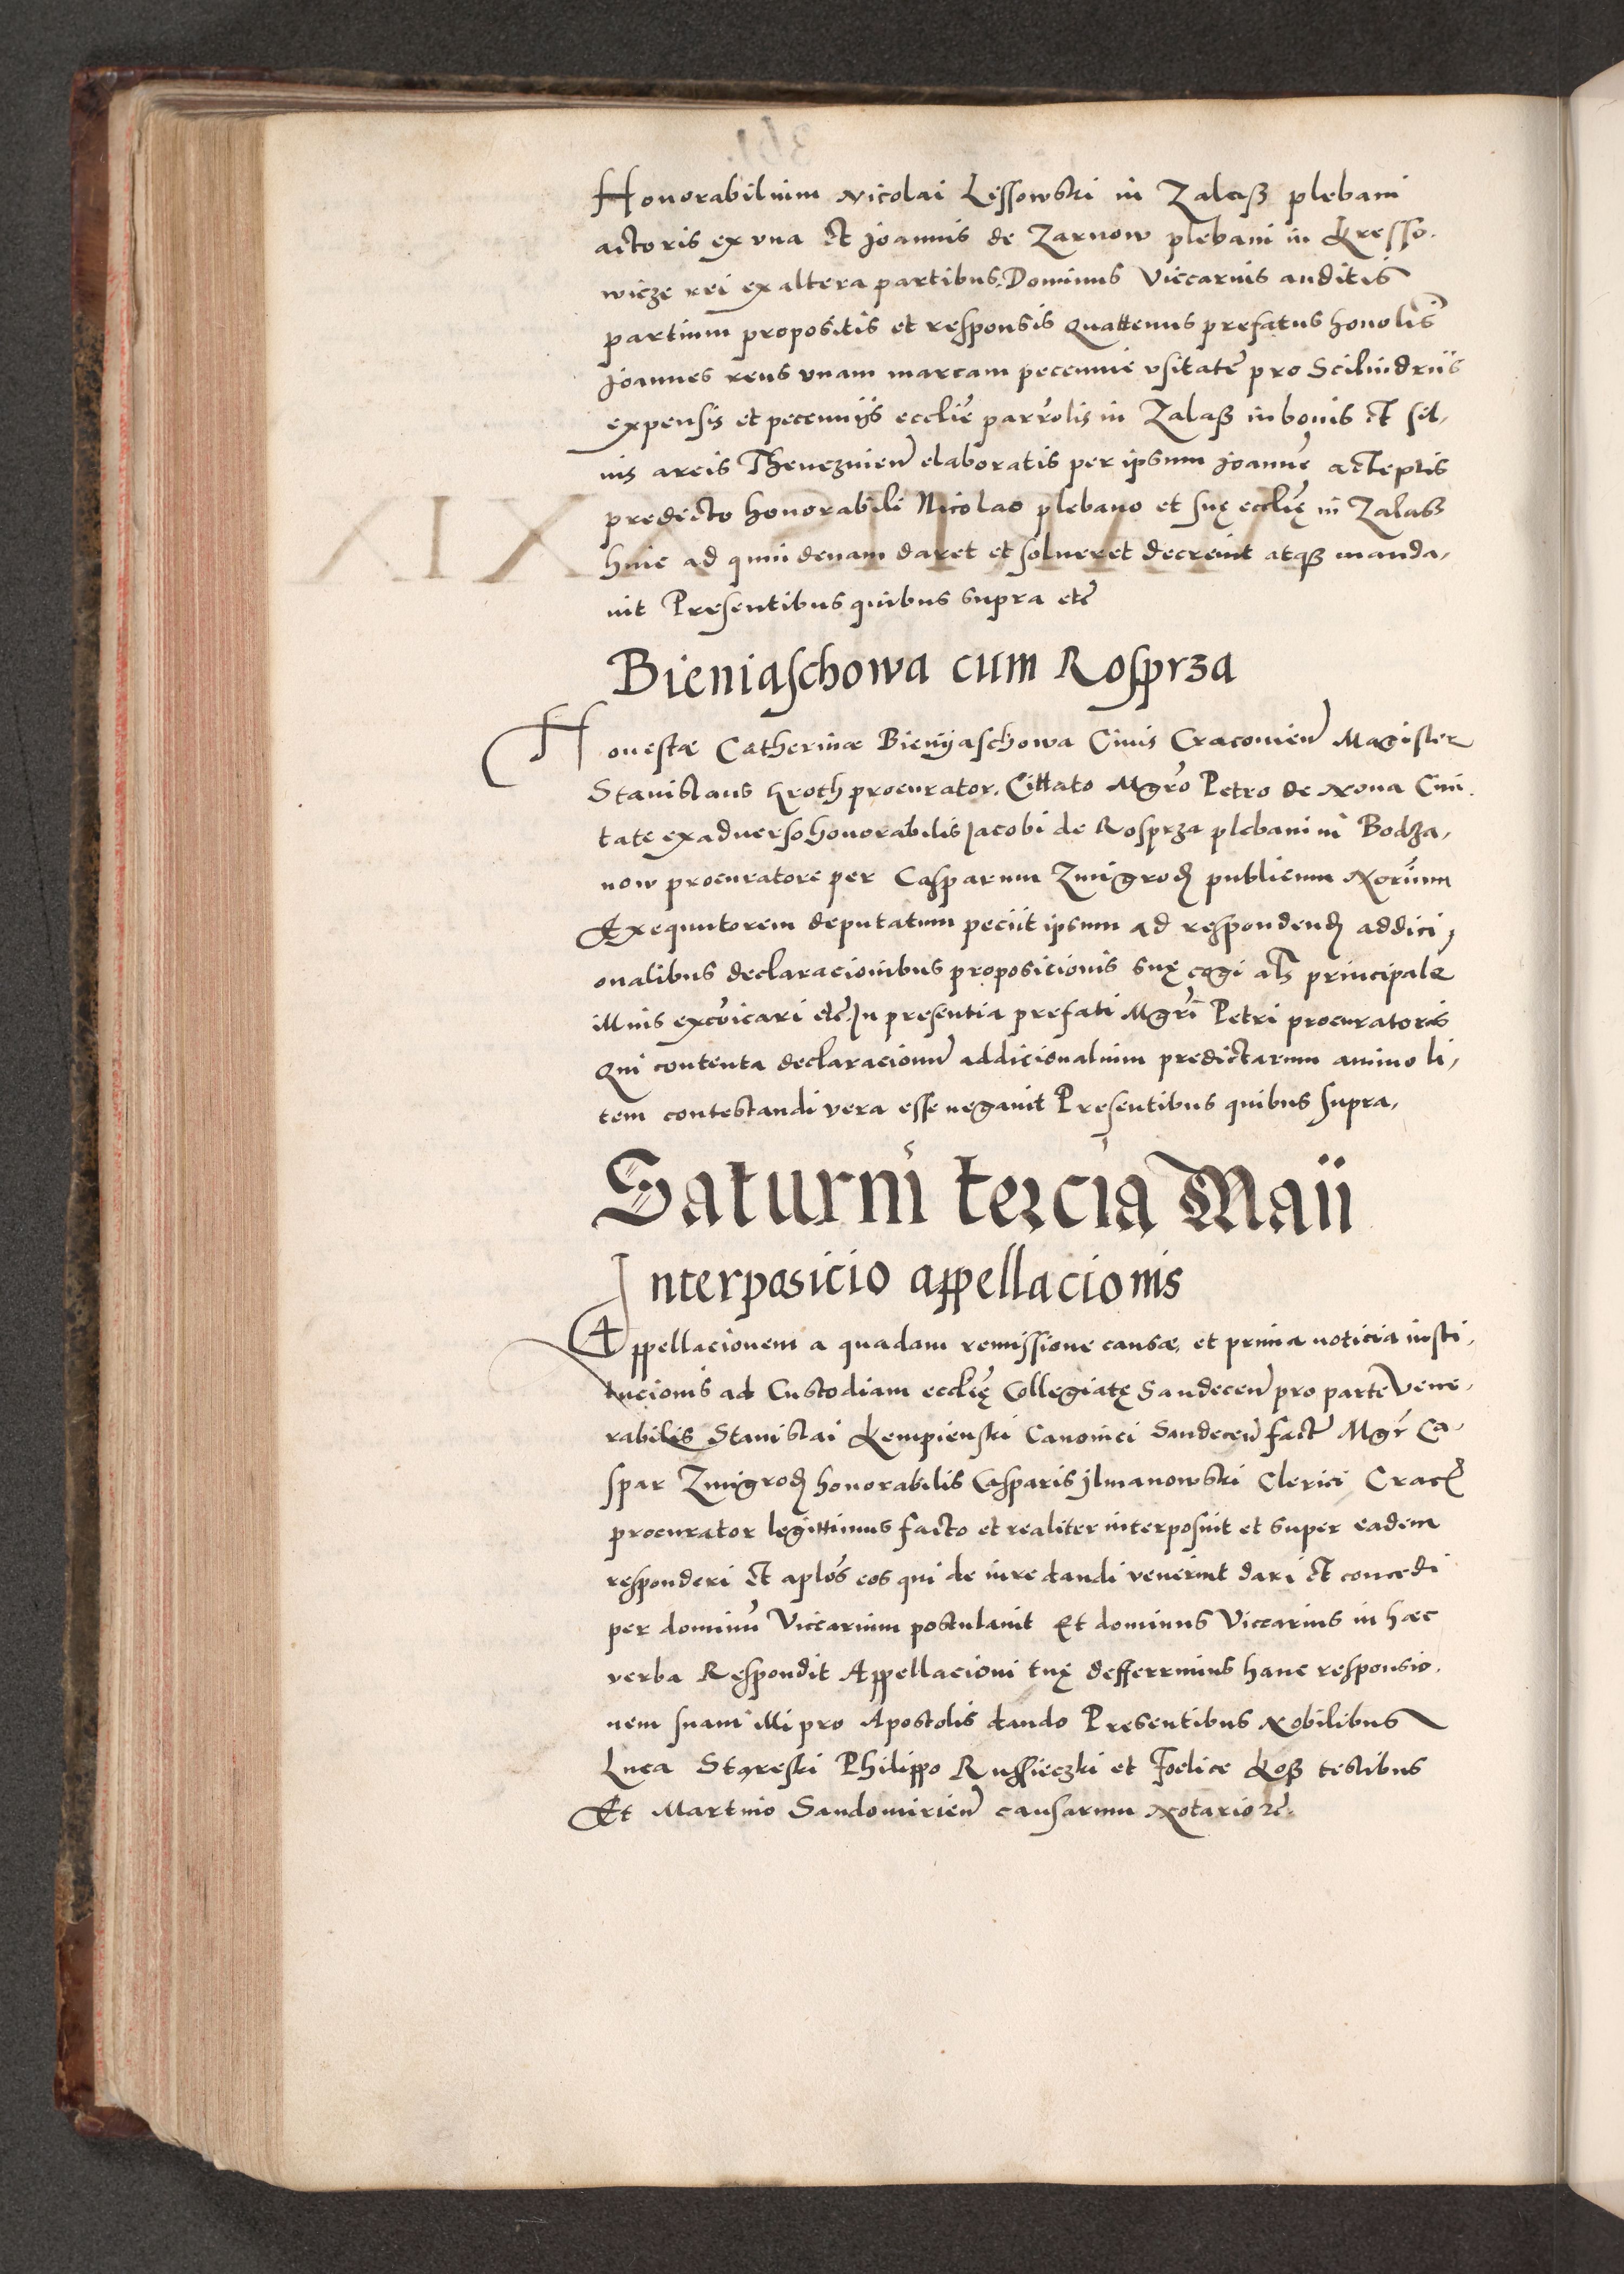 Honorabilium Nicolai Lissowski in Zalasß plebani
actoris ex vna et Joannis de Zarnow plebani in Kresso-
wicze rei ex altera partibus. Dominus Viccarius auditis
partium propositis et responsis Quattenus prefatus honolis
Joannes reus vnam marcam peccunie vsitate pro Scilindriis
expensis et peccuniis ecclie parrolis in Zalasß in bonis et sil-
uis areis elaboratis per ipsum Joanne acceptis
predicto honorabili Nicolao plebano et suę ecclię in Zalasß
hinc ad quindenam daret et solueret decreuit atqß manda-
uit Presentibus quibus supra etc
Bieniaschowa cum Rosprza
Honestæ Catherinæ Bieniyaschowa Ciuis Cracouien Magister
Stanislaus Kroth procurator. Cittato Mgro Petro de Noua Ciui-
tate ex aduerso honorabilis Jacobi de Rosprza plebani in Bodza-
now procuratore per Casparum Zmigrod publicum Norium
Exequutorem deputatum peciit ipsum ad respondend addici-
onalibus declaracionibus proposicionis suę cogi als principale
illius excoicari etc. In presentia prefati Mgri Petri procuratoris
Qui contenta declaracionu addicionalium predictarum animo li-
tem contestandi vera esse negauit Presentibus quibus supra,
Saturni tercia Maii
Interposicio appellacionis
Appellacionem a quadam remissione causæ, et prima noticia insti-
tucionis ad Custodiam ecclię Collegiatę Sandecen pro parte Vene-
rabilis Stanislai Kempienski Canonici Sandecen fact Mgr Ca-
spar Zmigrod honorabilis Casparis Jlmanowski Clerici Crac
procurator legittimus facto et realiter interposuit et super eadem
responderi et aplos eos qui de iure dandi venerint dari et concedi
per dominu Viccarium postulauit Et dominus Viccarius in hæc
verba Respondit Appellacioni tuę defferrimus hanc responsio-
nem suam illi pro Apostolis dando Presentibus Nobilibus
Luca Philippo et Foelice Kosß testibus
Et Martino Sandomirien causarum Notario etc.